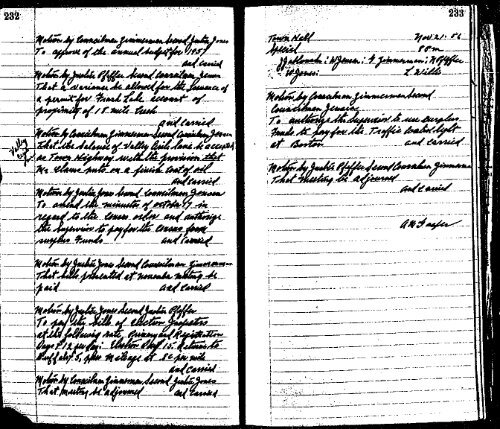 232
Motion by Councilman Zimmerman Second Justice Jones
To approve of the annual budget for 1957
and carried
Motion by Justice Pfeffer Second Councilman Jensen
That a variance be allowed for the issuance of
a permit for Frank Lake account of
proximity of 18 mile
and carried
Motion by Councilman Zimmerman Second Councilman Jensen
That the balance of Valley Lane be accepted
as Town Highway with the provision that
Mr puts on a finish coat of oil
and carried
Valley
Motion by Justice Jones Second Councilman Jensen
To amend the minutes of October 17 in
regard to the order and authorize
the Supervisor to pay for the from
surplus funds and carried
Motion by Justice Jones Second Councilman Zimmerman
That bills presented at November meeting be
paid and carried
Motion by Justice Jones Second Justice Pfeffer
To pay the bills of election Inspectors
at the following rate, Primary and Registration
days $12 per day. Election Day 15. Returns to
5, plus mileage at 8¢ per mile
and carried
Motion by Councilman Zimmerman Second Justice Jones
That meeting be adjourned and carried
233
Town Hall Nov 21 . 56
Special 8 PM
W Jensen: Zimmerman: Pfeffer
W Jones: L Wilde
Motion by Councilman Zimmerman Second
Councilman Jensen
To authorize the Supervisor to use surplus
funds to pay for the Traffic Control light
at Boston and carried
Motion by Justice Pfeffer Second Councilman Zimmerman
That meeting be adjourned
and carried